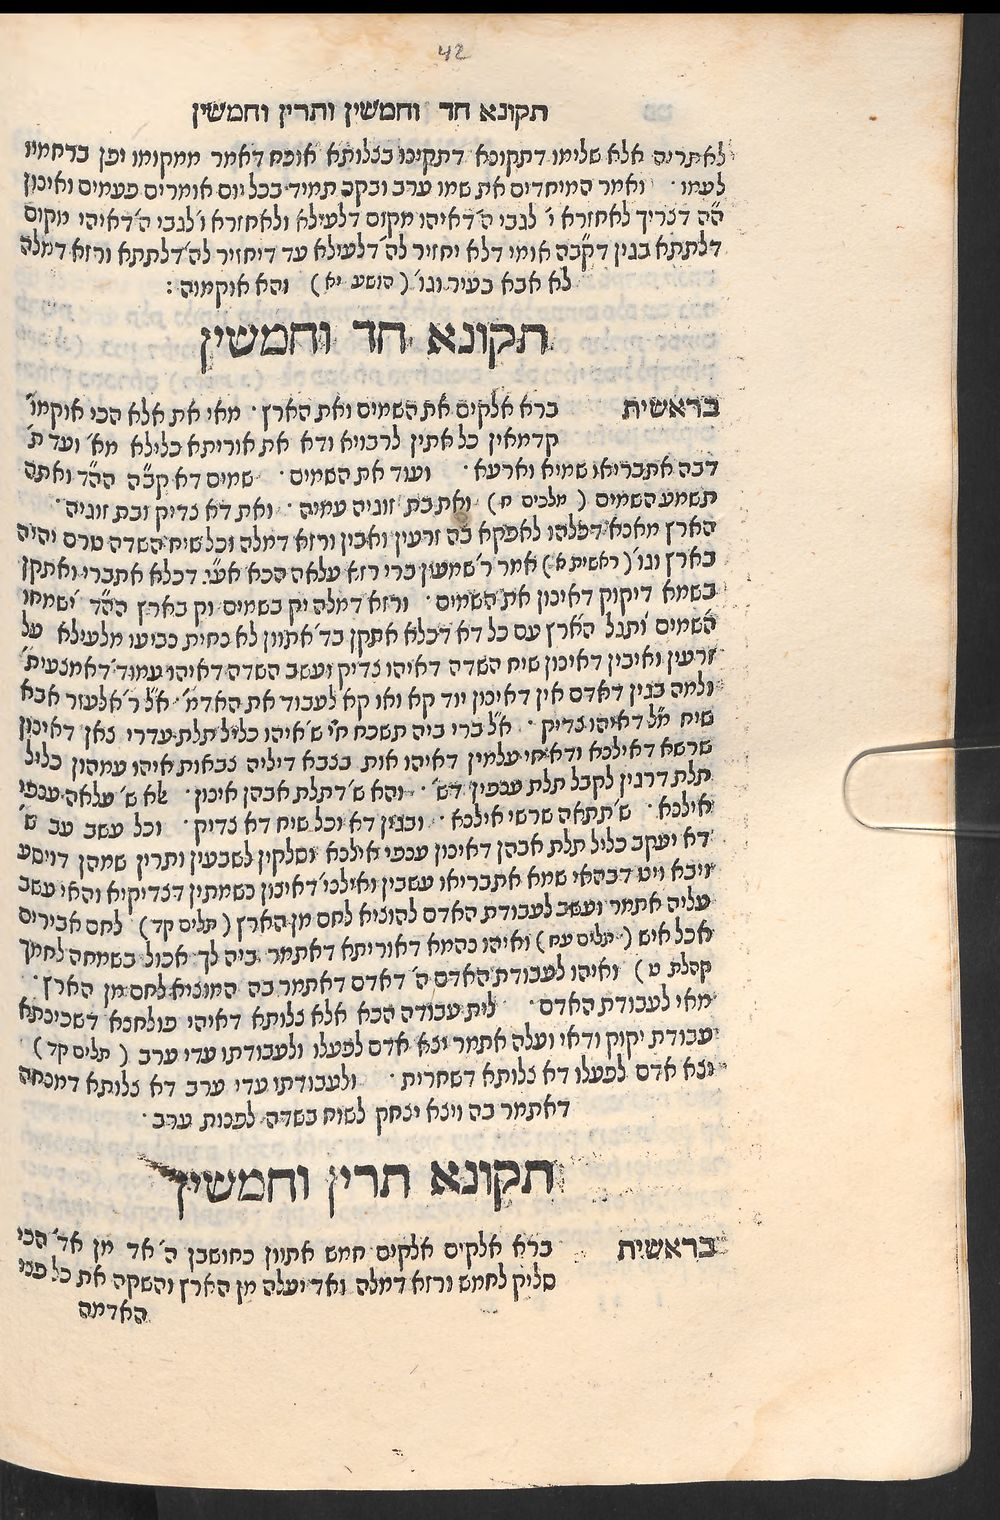 42
תקונא חד וחמשין ותרין וחמשין
לאתריה אלא שלימו דתקונא דתקינו בגלותא אוכח דאמר ממקומו יפן ברחמיו
לעמו · ואמר המיחדים את שמו ערב ובקר תמיד בכל יום אומרים פעמים ואינון
ה״ה דצריך לאחזרא ו׳ לגבי ה׳ דאיהו מקום דלעילא ולאחזרא ו׳ לגבי ה׳ דאיהי מקום
דלתתא בגין דקב״ה אומי דלא יחזיר לה׳ דלעילא עד דיחזיר לה׳ דלתתא ורזא דמלה
לא אבא בעיר וגו׳ ( הושע יא ) והא אוקמוה :
תקונא חד וחמשין
בראשית ברא אלקים את השמים ואת הארץ · מאי את אלא הכי אוקמו׳
קדמאין כל אתין לרבויא ודא את אוריתא כלילא מא׳ ועד ת׳
דבה אתבריאו שמיא וארעא · ועוד את השמים · שמים דא קב״ה הה״ד ואתה
תשמע השמים ( מלכים ח ) ואת בת זוגיה עמיה · ואת דא צדיק ובת זוגיה ·
הארץ מאנא דכלהו לאפקא בה זרעין ואבין ורזא דמלה וכל שיח השדה טרם יהיה
בארץ וגו׳ ( ראשית א ) אמר ר׳ שמעון ברי רזא עלאה הכא אע״ג דכלא אתברי ואתקן
בשמא דיקוק דאינון את השמים · ורזא דמלה יק בשמים וק בארץ הה״ד ישמחו
השמים ותגל הארץ עם כל דא דכלא אתקן בד׳ אתוון לא נחית נביעו מלעילא על
זרעין ואיבין דאינון שיח השדה דאיהו צדיק ועשב השדה דאיהו עמוד׳ דאמצעית׳
ולמה בגין דאדם אין דאינון יוד קא ואו קא לעבוד את האדמ׳ · א״ל ר׳ אלעזר אבא
שיח מ״ל דאיהו צדיק · א״ל ברי ביה תשכח ח״י ש׳ איהו כליל תלת עדרי צאן דאינון
שרשא דאילנא ודא חי עלמין דאיהו אות בצבא דיליה צבאות איהו עמהון כליל
תלת דרגין לקבל תלת ענפין דש׳ · והא ש׳ דתלת אבהן אינון · אלא ש׳ עלאה ענפי
אילנא · ש׳ תתאה שרשי אילנא · ובגין דא וכל שיח דא צדיק · וכל עשב עב ש׳
דא יעקב כליל תלת אבהן דאינון ענפי אילנא וסלקין לשבעין ותרין שמהן דויסע
ויבא ויט דבהאי שמא אתבריאו עשבין ואילני׳ דאינון נשמתין דצדיקיא והאי עשב
עליה אתמר ועשב לעבודת האדם להוציא לחם מן הארץ ( תלים קד ) לחם אבירים
אכל איש ( תלים עח ) ואיהו נהמא דאוריתא דאתמר ביה לך אכול בשמחה לחמך
קהלת ט ) ואיהו לעבודת האדם ה׳ דאדם דאתמר בה המוציא לחם מן הארץ ·
מאי לעבודת האדם · לית עבודה הכא אלא צלותא דאיהי פולחנא דשכינתא
עבודת יקוק ודאי ועלה אתמר יצא אדם לפעלו ולעבודתו עדי ערב ( תלים קד )
יצא אדם לפעלו דא צלותא דשחרית · ולעבודתו עדי ערב דא צלותא דמנחה
דאתמר בה ויצא יצחק לשוח בשדה לפנות ערב ·
תקונא תרין וחמשין
בראשית ברא אלקים אלקים חמש אתוון כחושבן ה׳ אד מן אד׳ הכי
סליק לחמש ורזא דמלה ואד יעלה מן הארץ והשקה את כל פני
האדמה